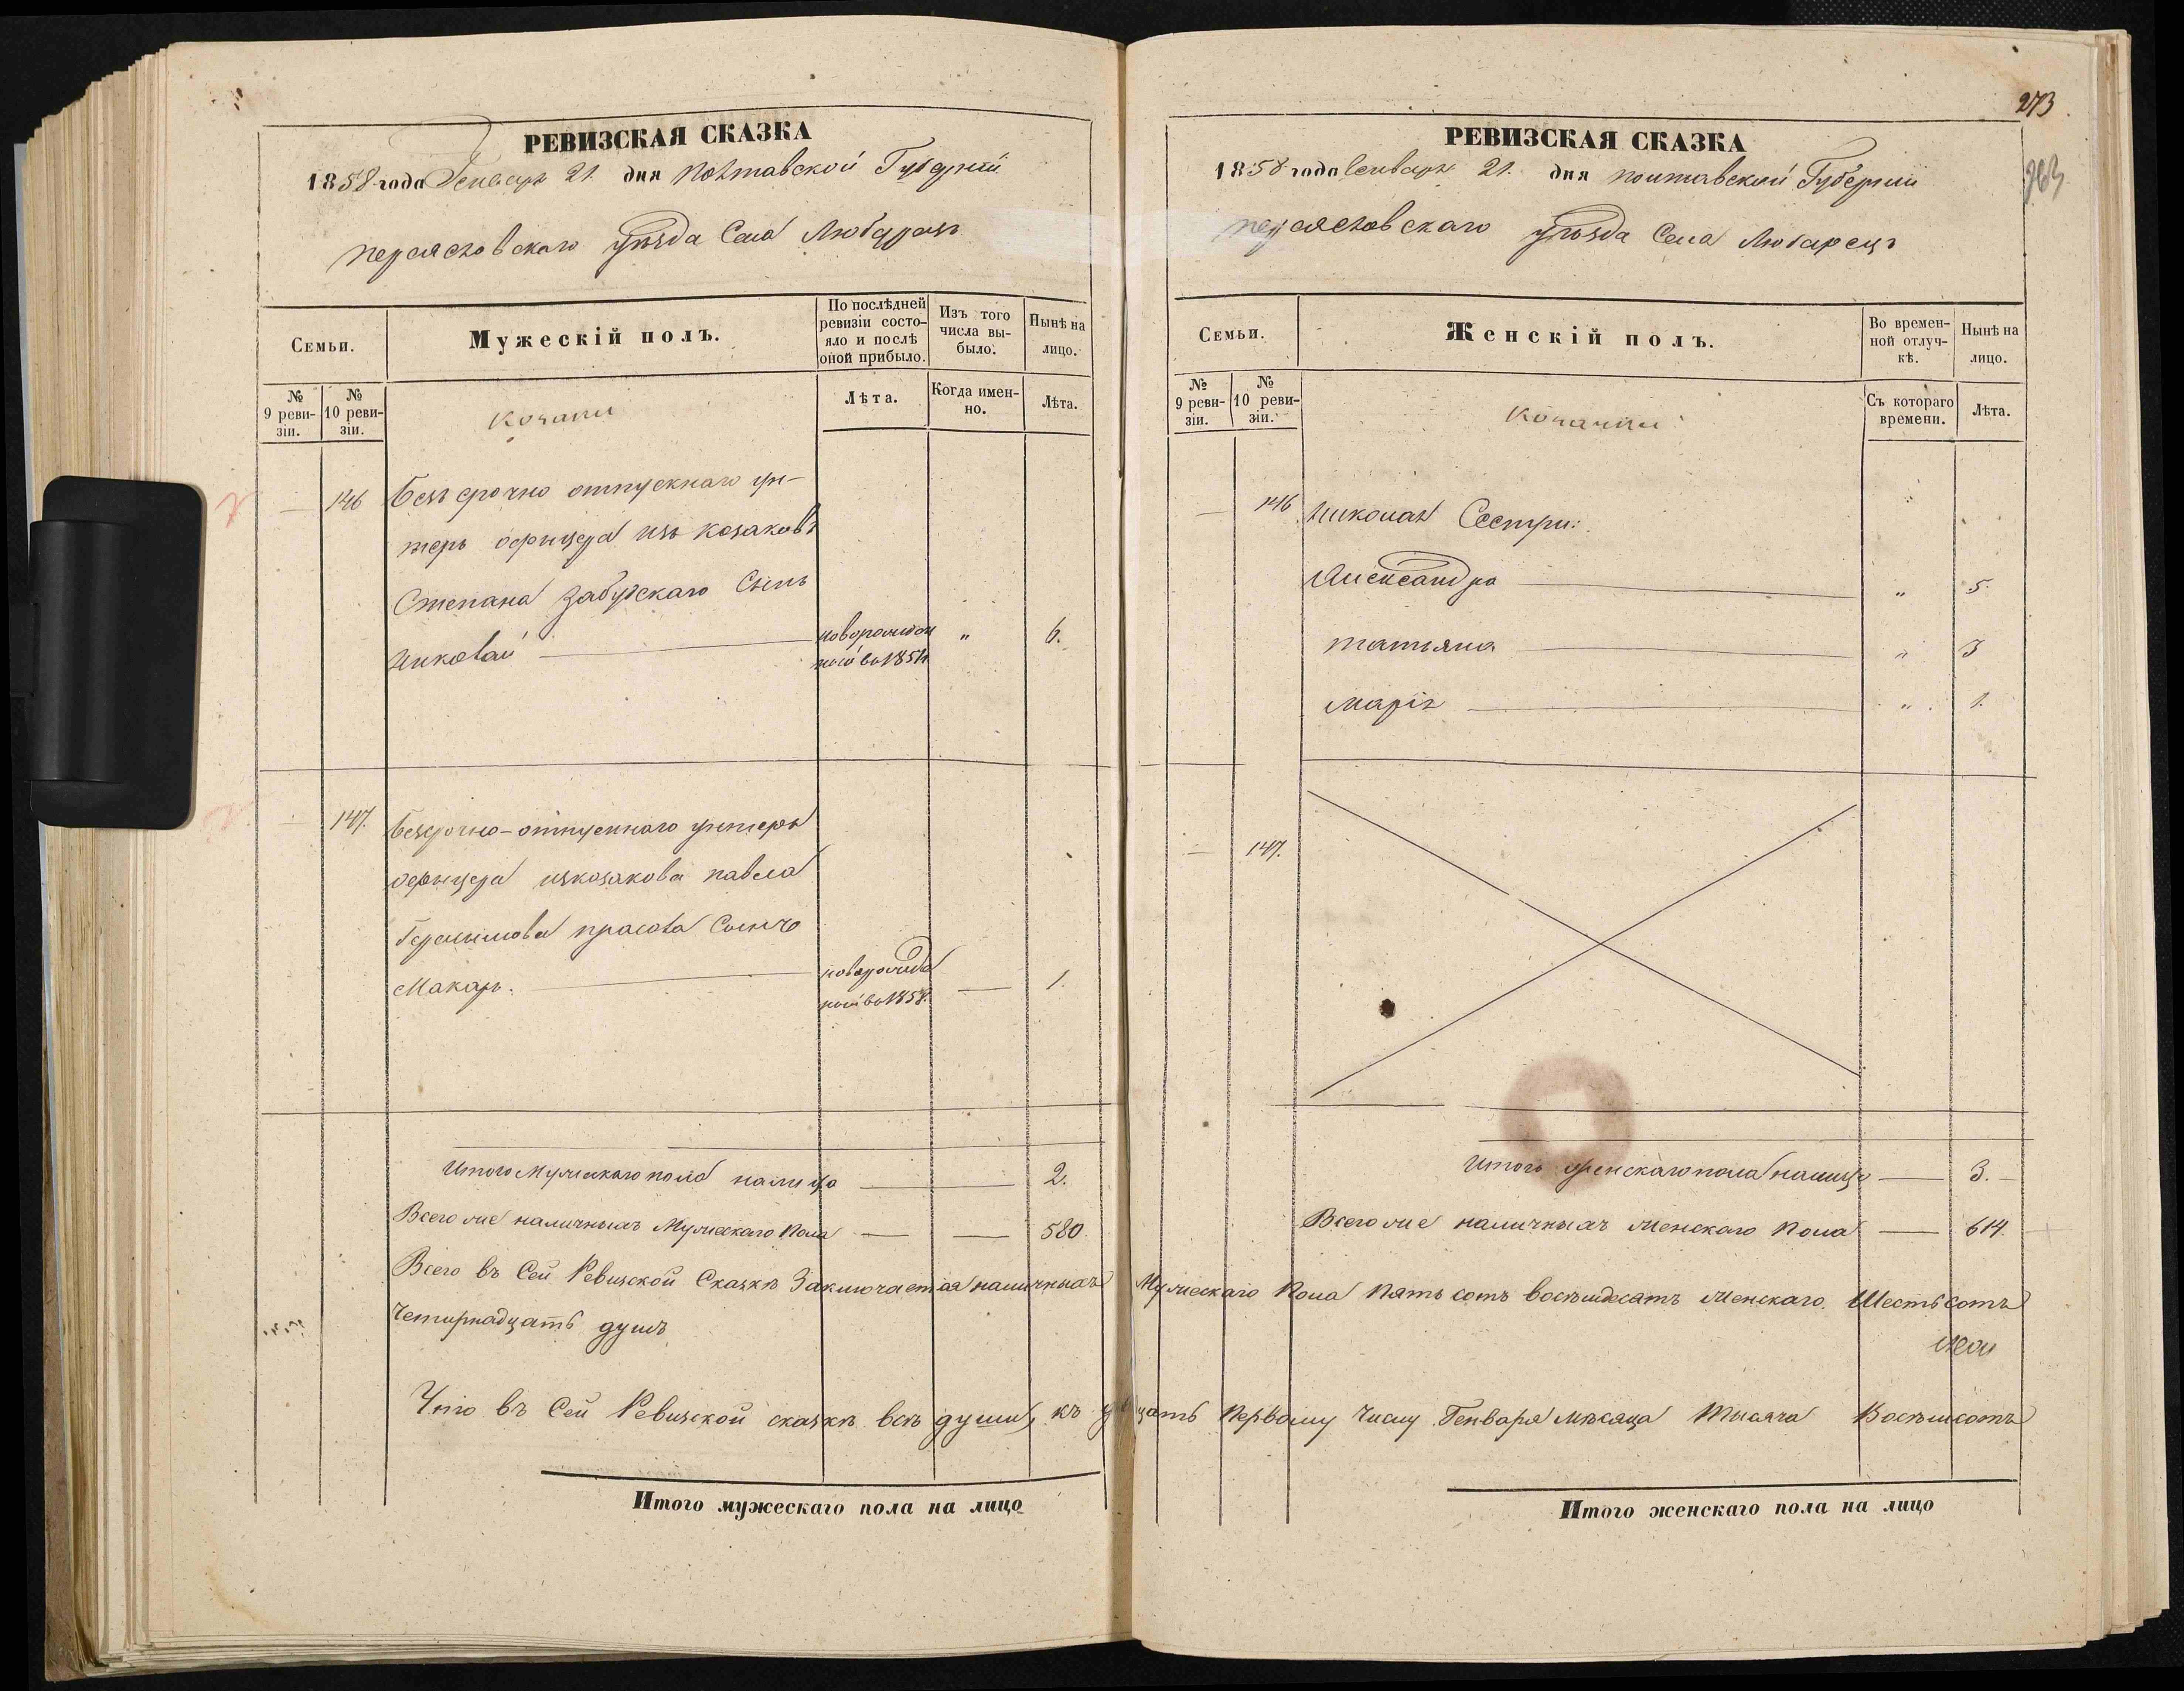 РЕВИЗСКАЯ СКАЗКА
1858 года Генваря 21. дня Полтавской Губерніи
переясловскаго уѣзда Села Любарецъ
Семьи.
Мужескій полъ.
По послѣдней ревизіи состояло и послѣ оной прибыло.
Изъ того числа выбыло.
Нынѣ на лицо.
№ 9 ревизіи.
№ 10 ревизіи.
Козаки
Лѣта.
Когда именно.
Лѣта.
146 Безъ срочно отпускнаго ун-
теръ офицера изъ козаковъ
Степана Забудскаго Сынъ
Николай — новорожден " 6.
ной во 185
— 147. безсрочно-отпускнаго унтеръ
офицера изкозакова павла
Герасимова Сынъ
Макаръ. — новорожде — 1.
ной во 185
Итого Мужескаго пола налицо — 2.
Всего же наличныхъ Мужескаго Пола — — 580.
РЕВИЗСКАЯ СКАЗКА
273
263
1858 года Генваря 21. дня полтавской Губерніи
переясловскаго уѣзда Села Любарецъ
Семьи.
Женскій полъ.
Во временной отлучкѣ.
Нынѣ на лицо.
№ 9 ревизіи.
№ 10 ревизіи.
Козачки
Съ котораго времени.
Лѣта.
— 146 Николая Сестри:
Александра — " 5.
татьяна — " 3
марія — " 1.
— 147.
Итого женскаго пола налицо — 3. —
Всего же наличныхъ женскаго Пола — 614.
Всего въ Сей Ревизской Сказкѣ Заключается наличныхъ Мужескаго Пола Пять сотъ восѣмдесятъ женскаго Шестьсотъ
Четирнадцать душъ
Что въ Сей Ревизской сказкѣ всѣ души, къ двацать Первому Числу Генваря мѣсяца тысяча Восѣмсотъ
Итого мужескаго пола на лицо
Итого женскаго пола на лицо